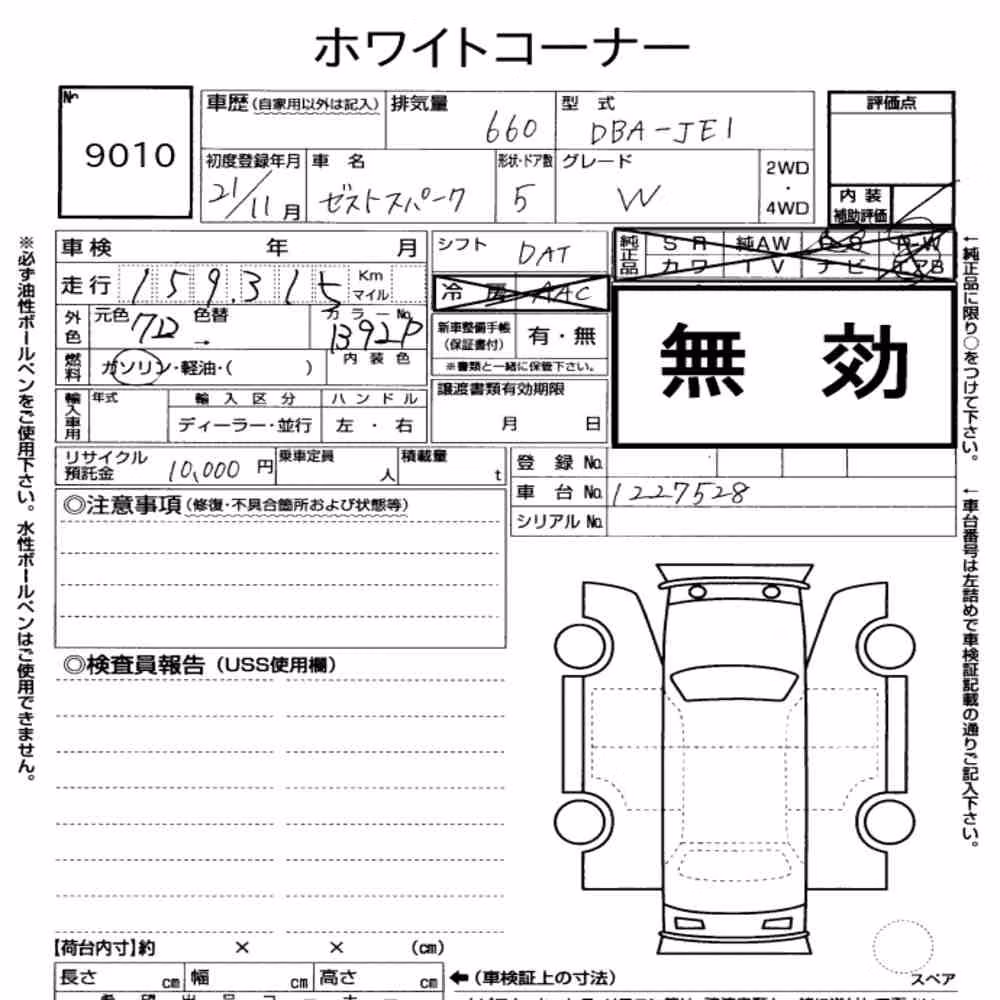 ホワイトコーナー
№ 9010
車歴(自家用以外は記入) 排気量 660 型式 DBA-JE1 評価点
初度登録年月 21/11月 車名 ゼストスパーク 形状・ドア数 5 グレード W 2WD・4WD
内装補助評価
車検 年 月 シフト DAT 純正品 SR 純AW
カワ TV ナビ エアB
走行 159,315 Km マイル 冷房 AAC
外色 元色 色替 → カラーNo. B92P
新車整備手帳(保証書付) 有・無
※書類と一緒に保管下さい。
内装色
燃料 ガソリン・軽油・( )
無効
輸入車用 年式 輸入区分 ハンドル
ディーラー・並行 左・右
譲渡書類有効期限
月 日
リサイクル預託金 10,000円 乗車定員 人 積載量 t
登録№
車台№ 1227528
シリアル№
◎注意事項(修復・不具合箇所および状態等)
◎検査員報告(USS使用欄)
※必ず油性ボールペンをご使用下さい。水性ボールペンはご使用できません。
←純正品に限り○をつけて下さい。
←車台番号は左詰めで車検証記載の通りご記入下さい。
【荷台内寸】約 × × (cm)
長さ cm 幅 cm 高さ cm ←(車検証上の寸法)
スペア